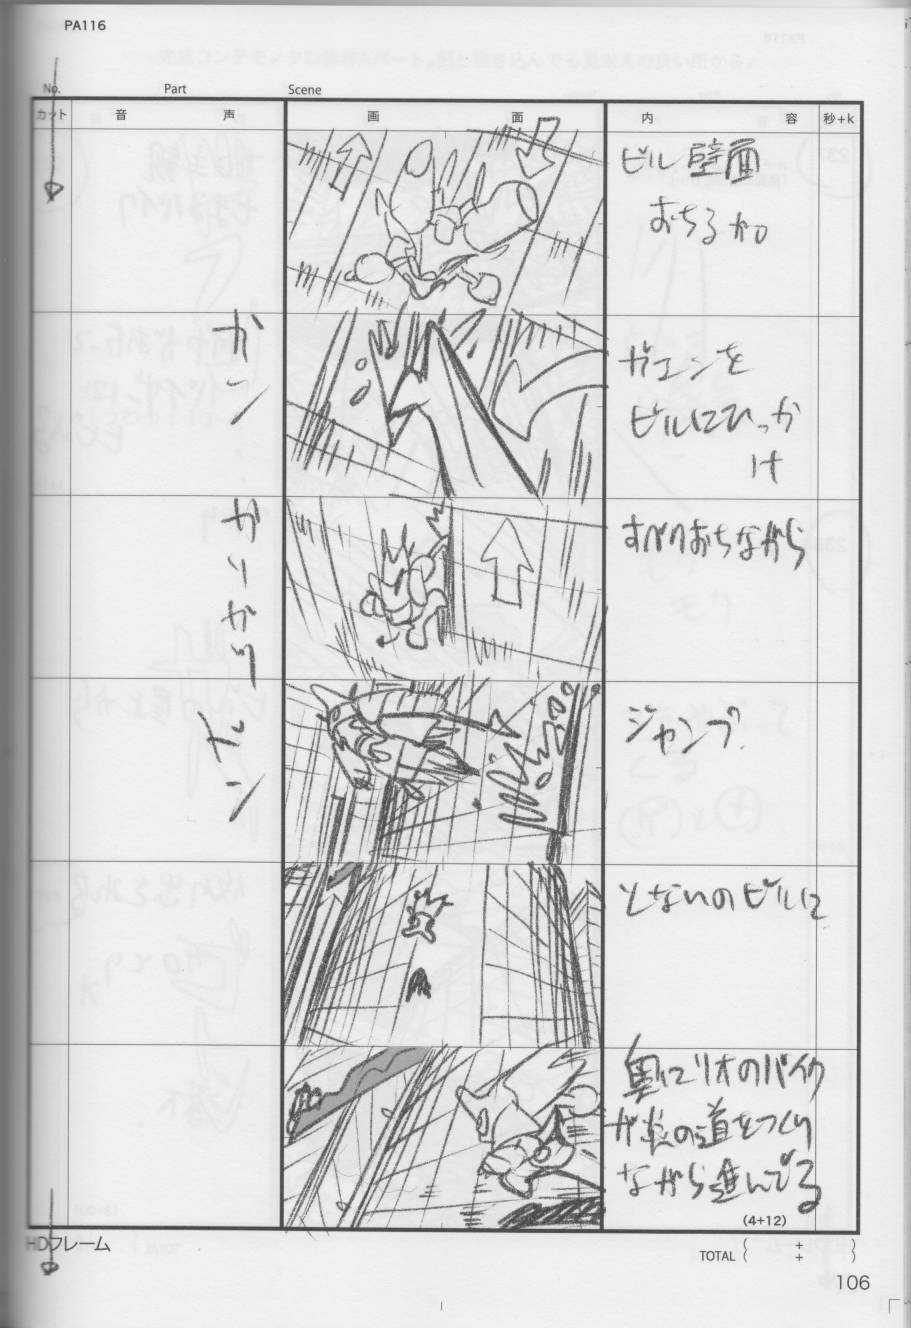 PA116
No. Part Scene
カット 音 声 画 面 内 容 秒+k
ビル壁面
おちるガロ
ガエンを
ビルにひっか
け
すべりおちながら
ジャンプ
となりのビルに
奥にリオのバイク
が炎の道をつくり
ながら進んでる
(4+12)
HDフレーム
TOTAL ( + + )
106